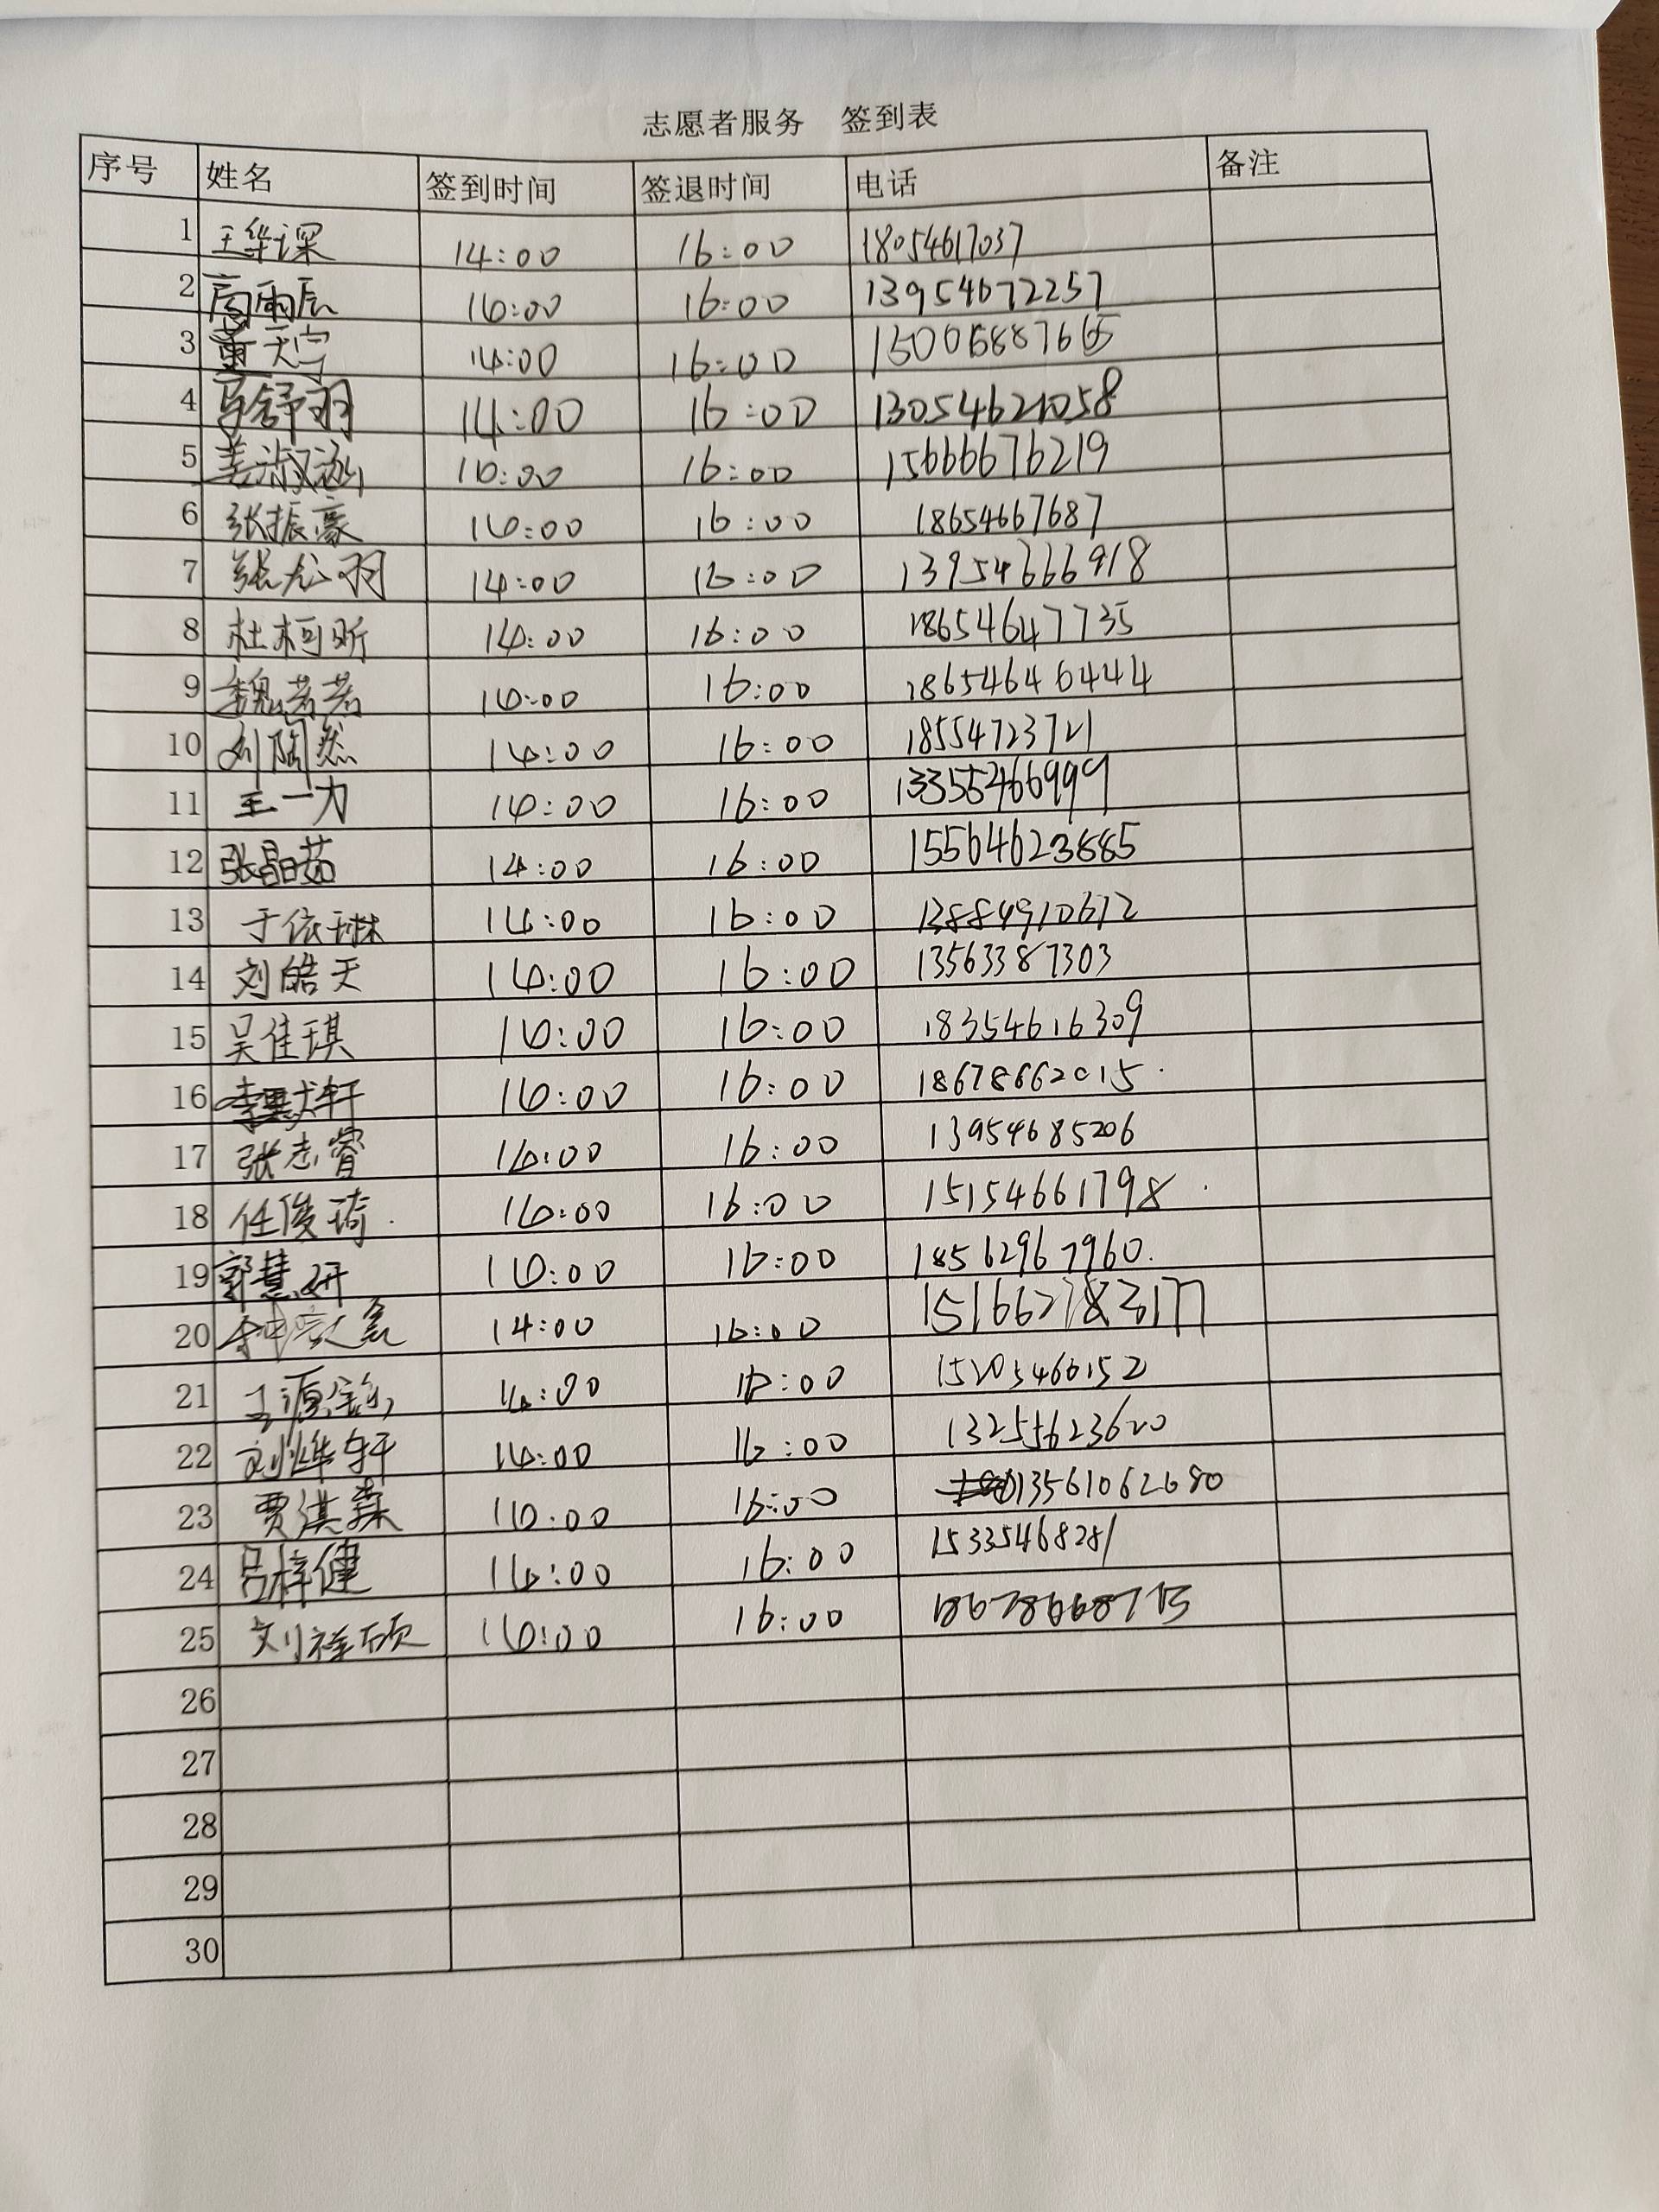 志愿者服务 签到表
序号 姓名 签到时间 签退时间 电话 备注
1 王华琛 14:00 16:00 18054617037
2 高雨辰 14:00 16:00 13954672257
3 天 14:00 16:00
4 马舒羽 14:00 16:00 13054621058
5 姜淑涵 14:00 16:00 15666676219
6 张振豪 14:00 16:00 18654667687
7 张尤羽 14:00 16:00 13954666918
8 杜柯昕 14:00 16:00 18654647735
9 魏若若 14:00 16:00 18654646444
10 刘陶然 14:00 16:00 18554723721
11 王一力 14:00 16:00 13355466999
12 张晶茹 14:00 16:00 15564623885
13 于依琳 14:00 16:00 13884910612
14 刘皓天 14:00 16:00 13563387303
15 吴佳琪 14:00 16:00 18354616309
16 李昊轩 14:00 16:00 18678662015
17 张志睿 14:00 16:00 13954685206
18 任俊琦 14:00 16:00 15154661798
19 郭慧妍 14:00 16:00 18562967960
20 14:00 16:00
21 14:00 16:00 15205460152
22 刘烨轩 14:00 16:00 13255623620
23 贾淇森 14:00 16:00 13561062680
24 吕梓健 14:00 16:00 15335468281
25 刘祥硕 14:00 16:00 18678668715
26
27
28
29
30